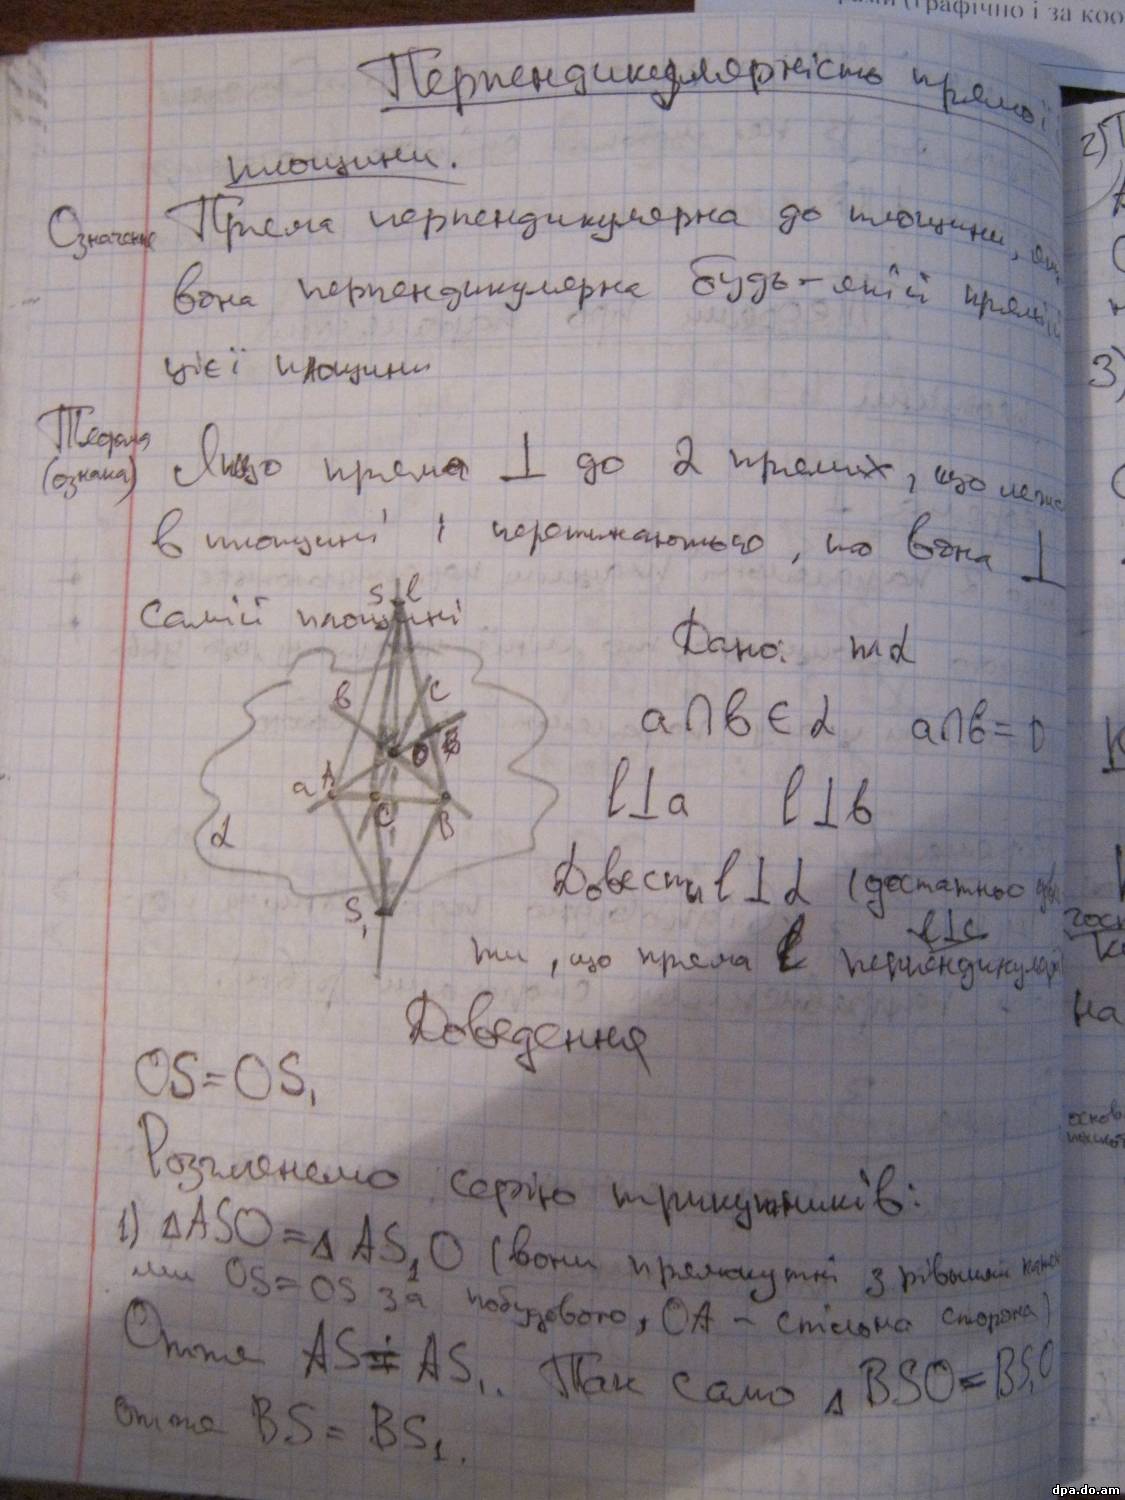 рами (графічно і за коо
Перпендикулярність прямої
площини.
Означення Пряма перпендикулярна до площини, якщ
вона перпендикулярна будь-якій прямій
цієї площини
Теорема
(ознака) Якщо пряма ⊥ до 2 прямих, що лежа
в площині і перетинаються, то вона ⊥
самій площині.
S l
Дано: пл α
b c
a∩b ∈ α a∩b = O
O
a A C B
l⊥a l⊥b
α
Довести l⊥α (достатньо до
S₁
l⊥c
ти, що пряма l перпендикуляр
Доведення
OS=OS₁
Розглянемо серію трикутників:
1) ΔASO=ΔAS₁O (вони прямокутні з рівними кате
ми OS=OS за побудовою, OA – спільна сторона)
Отже AS = AS₁. Так само Δ BSO=BS₁O
отже BS = BS₁.
2)
3)
на
dpa.do.am